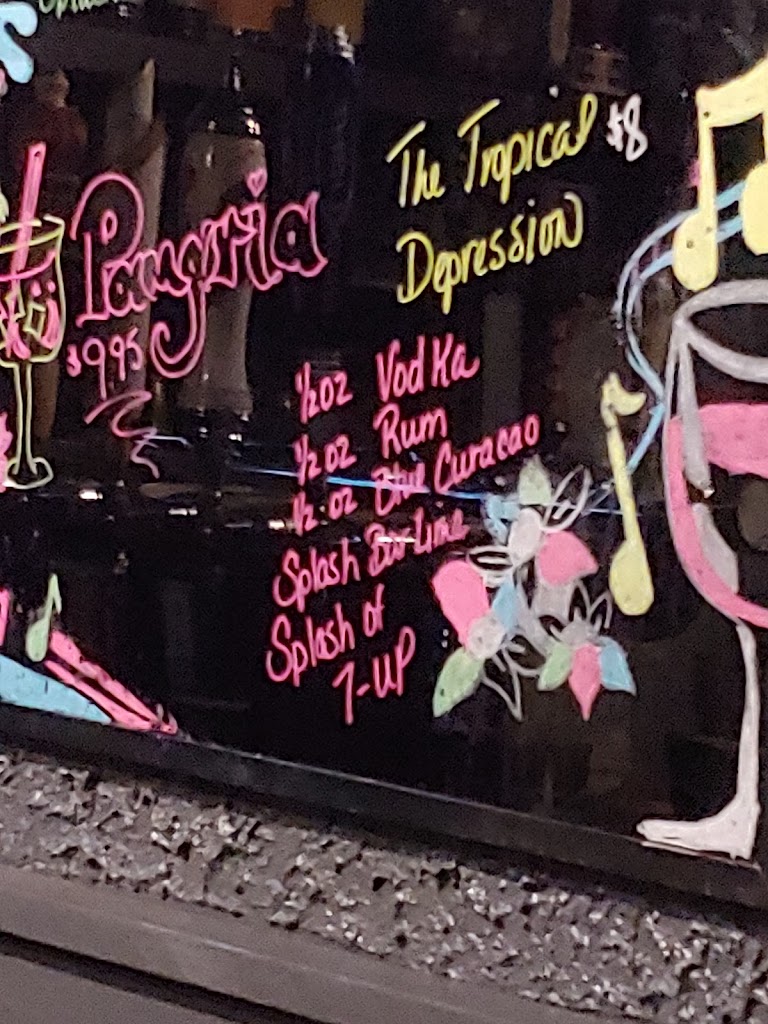 Pangria
$9.95
The Tropical $8
Depression
1/2 oz Vodka
1/2 oz Rum
1/2 oz Blue Curacao
Splash Bar Lime
Splash of
7-UP